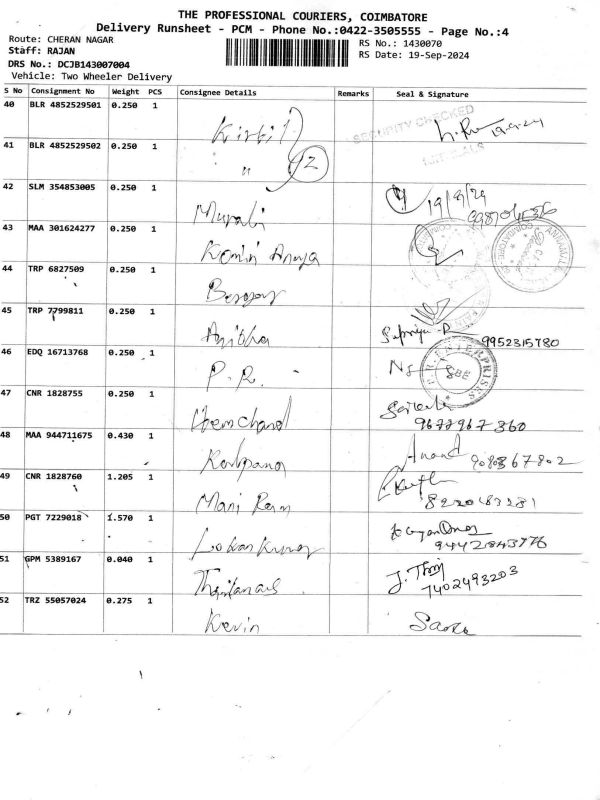 THE PROFESSIONAL COURIERS, COIMBATORE
Delivery Runsheet - PCM - Phone No.:0422-3505555 - Page No.:4
Route: CHERAN NAGAR
RS No.: 1430070
Staff: RAJAN
RS Date: 19-Sep-2024
DRS No.: DCJB143007004
Vehicle: Two Wheeler Delivery
S No Consignment No Weight PCS Consignee Details Remarks Seal & Signature
40 BLR 4852529501 0.250 1
SECURITY CHECKED
19.9.24
41 BLR 4852529502 0.250 1
" 2
42 SLM 354853005 0.250 1
Murali
19/9/24
43 MAA 301624277 0.250 1
44 TRP 6827509 0.250 1
45 TRP 7799811 0.250 1
Anitha
Supriya. D 9952315780
46 EDQ 16713768 0.250 1
P. R.
ENTERPRISES
SBE
47 CNR 1828755 0.250 1
Hemchand
9677967360
48 MAA 944711675 0.430 1
Kalpana
Anand 9080867802
49 CNR 1828760 1.205 1
Mani Ram
8220683281
50 PGT 7229018 1.570 1
9442843776
51 GPM 5389167 0.040 1
7402493203
52 TRZ 55057024 0.275 1
Kevin